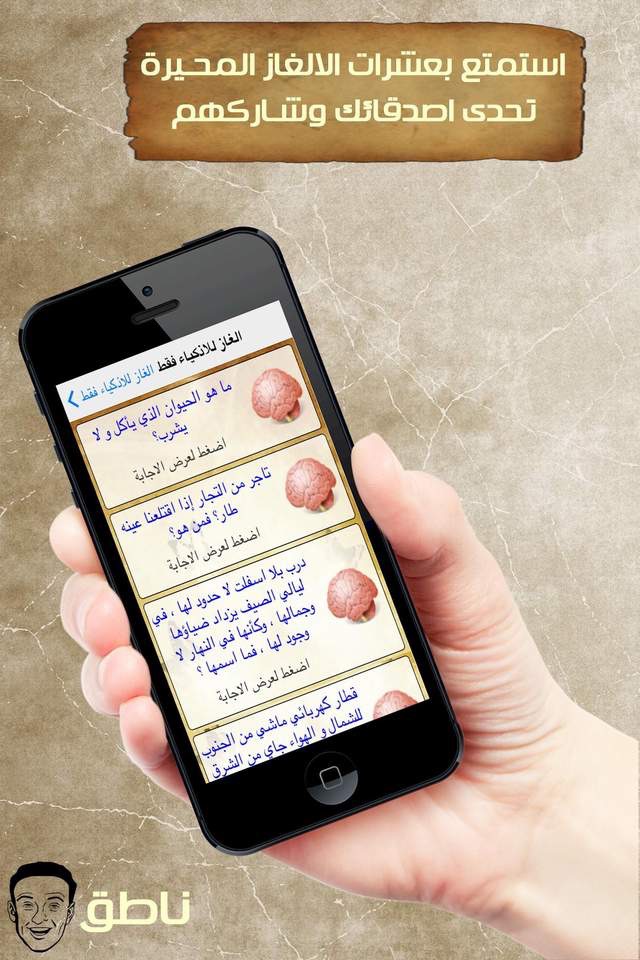 استمتع بعشرات الالغاز المحيرة
تحدى اصدقائك وشاركهم
الغاز للاذكياء فقط
الغاز للاذكياء فقط
ما هو الحيوان الذي يأكل و لا
يشرب؟
اضغط لعرض الاجابة
تاجر من التجار إذا اقتلعنا عينه
طار؟ فمن هو؟
اضغط لعرض الاجابة
درب بلا اسفلت لا حدود لها ، في
ليالي الصيف يزداد ضياؤها
وجمالها ، وكأنها في النهار لا
وجود لها ، فما اسمها ؟
اضغط لعرض الاجابة
قطار كهربائي ماشي من الجنوب
للشمال و الهواء جاي من الشرق
ناطق